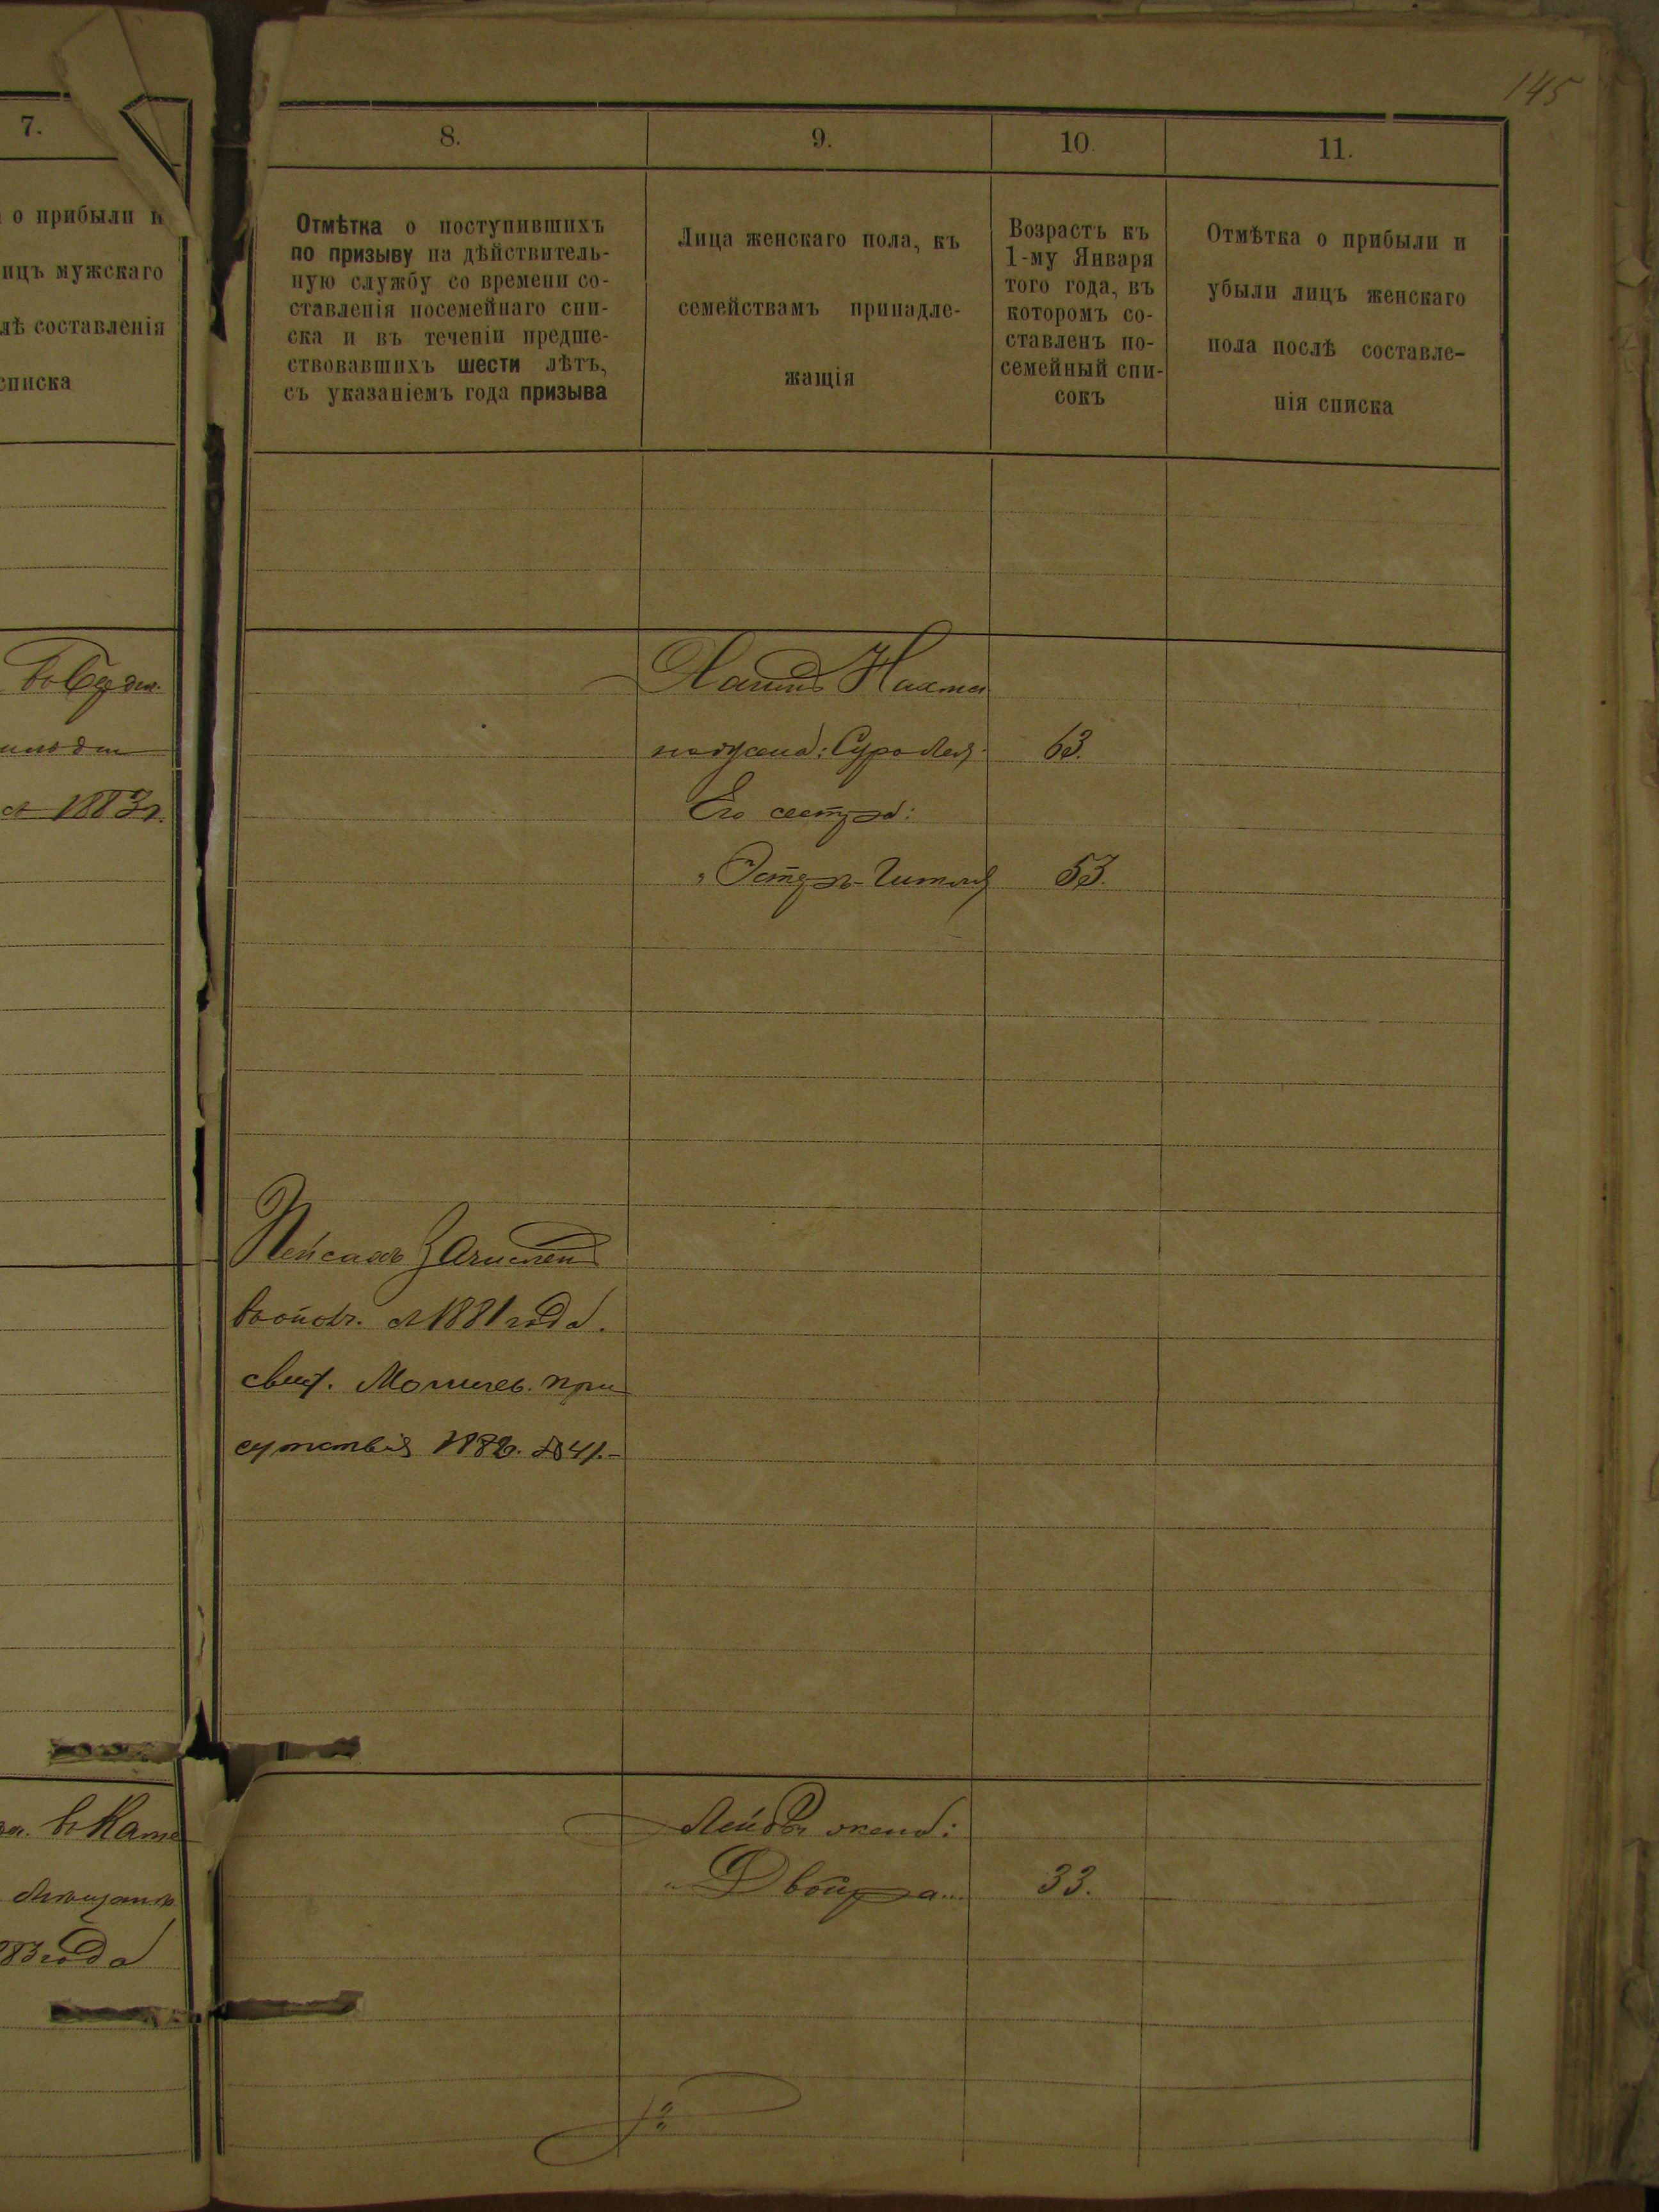 145
7.
8.
9.
10.
11.
о прибыли и
ицъ мужскаго
лѣ составленія
списка
Отмѣтка о поступившихъ
по призыву на дѣйствитель-
ную службу со времени со-
ставленія посемейнаго спи-
ска и въ теченіи предше-
ствовавшихъ шести лѣтъ,
съ указаніемъ года призыва
Лица женскаго пола, къ
семействамъ принадле-
жащія
Возрастъ къ
1-му Января
того года, въ
которомъ со-
ставленъ по-
семейный спи-
сокъ
Отмѣтка о прибыли и
убыли лицъ женскаго
пола послѣ составле-
нія списка
1883г.
жена: Сура Лея 63.
Его сестра:
„Эстеръ-Гитля 53.
Пейсахъ Зачислен
в ополч. съ 1881 года.
свид. Могилев. при
сутствія 1882. № 41.
Лейбы жена:
„Двойра„ 33.
83 года